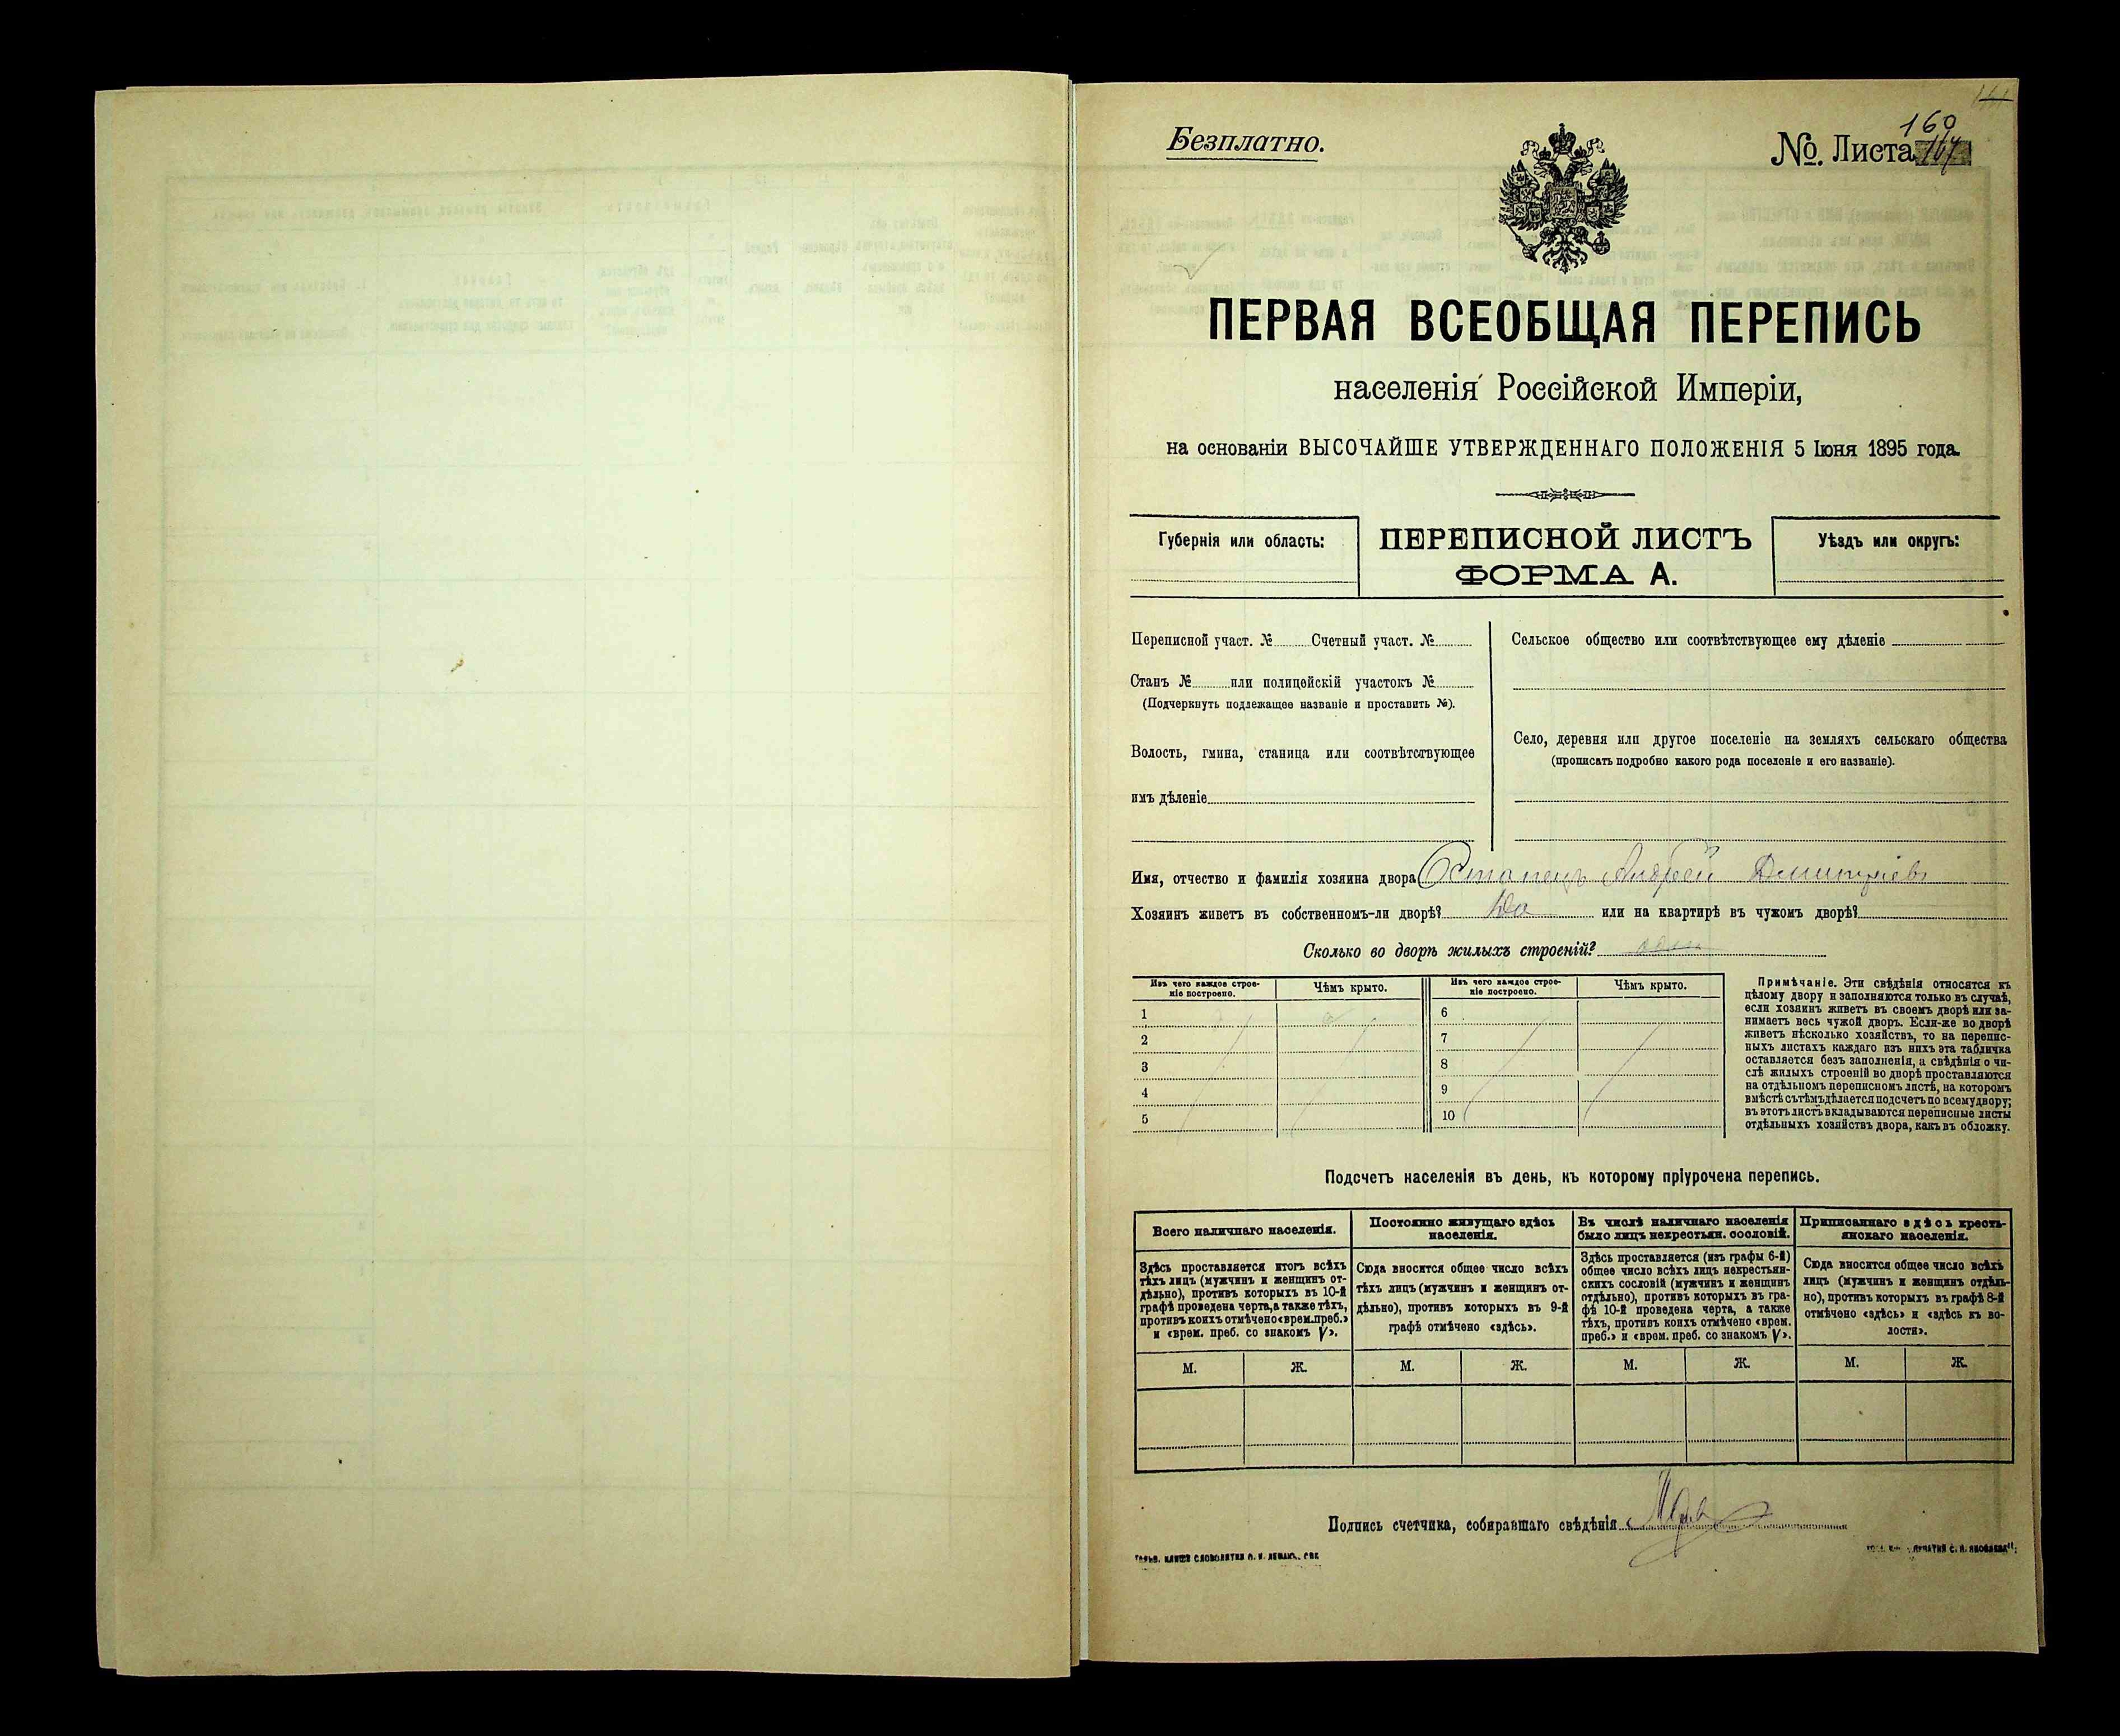 Безплатно.
160
№. Листа 164
ПЕРВАЯ ВСЕОБЩАЯ ПЕРЕПИСЬ
населенія Россійской Имперіи,
на основаніи ВЫСОЧАЙШЕ УТВЕРЖДЕННАГО ПОЛОЖЕНІЯ 5 Іюня 1895 года.
Губернія или область:
ПЕРЕПИСНОЙ ЛИСТЪ
ФОРМА А.
Уѣздъ или округъ:
Переписной участ. № Счетный участ. №
Станъ № или полицейскій участокъ №
(Подчеркнуть подлежащее названіе и проставить №).
Волость, гмина, станица или соотвѣтствующее
имъ дѣленіе
Сельское общество или соотвѣтствующее ему дѣленіе
Село, деревня или другое поселеніе на земляхъ сельскаго общества
(прописать подробно какого рода поселеніе и его названіе).
Имя, отчество и фамилія хозяина двора Остапецъ Андрей Дмитріевъ
Хозяинъ живетъ въ собственномъ-ли дворѣ? Да или на квартирѣ въ чужомъ дворѣ?
Сколько во дворѣ жилыхъ строеній? одно
Изъ чего каждое строе-
ніе построено.
Чѣмъ крыто.
1
2
3
4
5
Изъ чего каждое строе-
ніе построено.
Чѣмъ крыто.
6
7
8
9
10
Примѣчаніе. Эти свѣдѣнія относятся къ
цѣлому двору и заполняются только въ случаѣ,
если хозяинъ живетъ въ своемъ дворѣ или за-
нимаетъ весь чужой дворъ. Если-же во дворѣ
живетъ нѣсколько хозяйствъ, то на перепис-
ныхъ листахъ каждаго изъ нихъ эта табличка
оставляется безъ заполненія, а свѣдѣнія о чи-
слѣ жилыхъ строеній во дворѣ проставляются
на отдѣльномъ переписномъ листѣ, на которомъ
вмѣстѣ съ тѣмъ дѣлается подсчетъ по всему двору;
въ этотъ листъ вкладываются переписные листы
отдѣльныхъ хозяйствъ двора, какъ въ обложку.
Подсчетъ населенія въ день, къ которому пріурочена перепись.
Всего наличнаго населенія.
Здѣсь проставляется итогъ всѣхъ
тѣхъ лицъ (мужчинъ и женщинъ от-
дѣльно), противъ которыхъ въ 10-й
графѣ проведена черта, а также тѣхъ,
противъ коихъ отмѣчено «врем. преб.»
и «врем. преб. со знакомъ V».
М. Ж.
Постоянно живущаго здѣсь
населенія.
Сюда вносится общее число всѣхъ
тѣхъ лицъ (мужчинъ и женщинъ от-
дѣльно), противъ которыхъ въ 9-й
графѣ отмѣчено «здѣсь».
М. Ж.
Въ числѣ наличнаго населенія
было лицъ некрестьян. сословій.
Здѣсь проставляется (изъ графы 6-й)
общее число всѣхъ лицъ некрестьян-
скихъ сословій (мужчинъ и женщинъ
отдѣльно), противъ которыхъ въ гра-
фѣ 10-й проведена черта, а также
тѣхъ, противъ коихъ отмѣчено «врем.
преб.» и «врем. преб. со знакомъ V».
М. Ж.
Приписаннаго здѣсь кресть-
янскаго населенія.
Сюда вносится общее число всѣхъ
лицъ (мужчинъ и женщинъ отдѣль-
но), противъ которыхъ въ графѣ 8-й
отмѣчено «здѣсь» и «здѣсь къ во-
лости».
М. Ж.
Подпись счетчика, собиравшаго свѣдѣнія